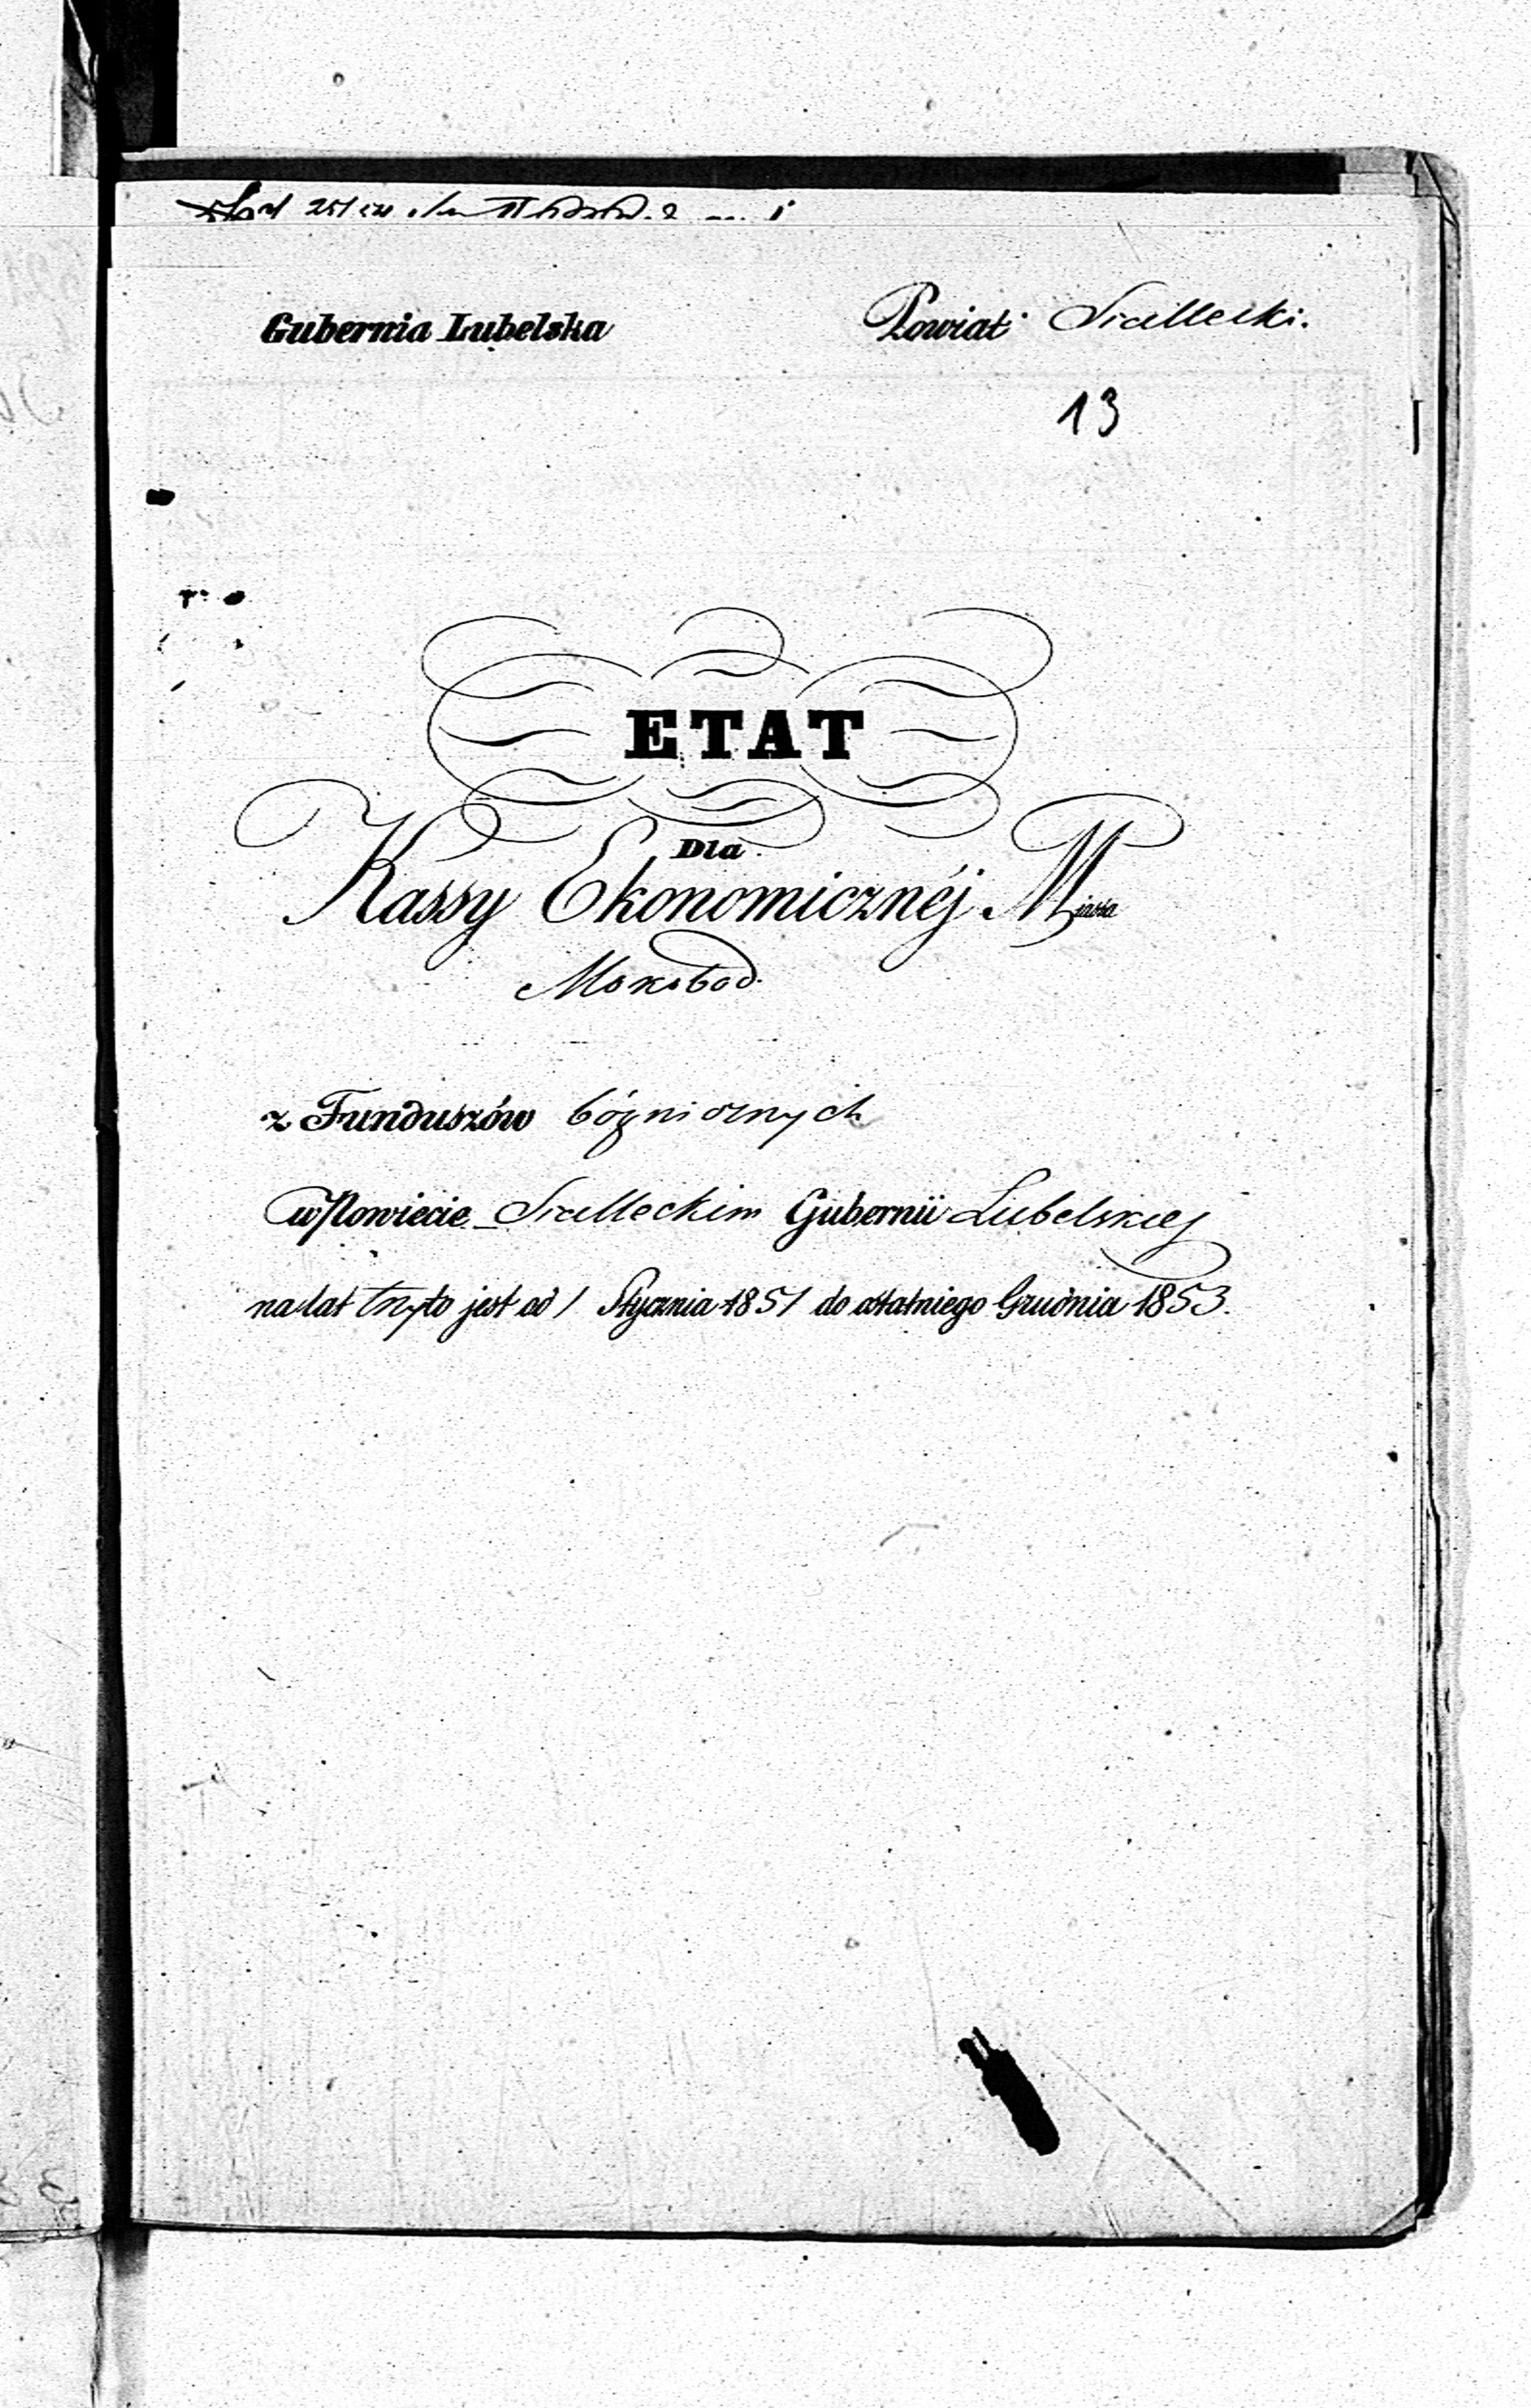 Gubernia Lubelska
Powiat Siedlecki.
13
ETAT
Dla
Kassy Ekonomicznéj Miasta
Mokobod.
z Funduszów bóżnicznych
w Powiecie Siedleckim Gubernii Lubelskiej
na lat trzy to jest od 1 Stycznia 1851 do ostatniego Grudnia 1853.